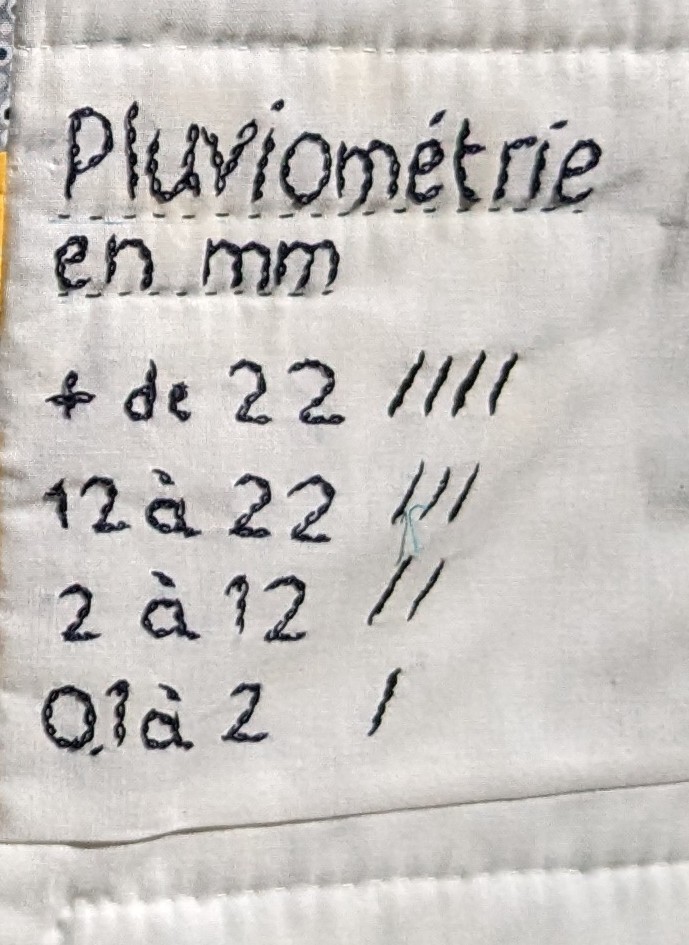 Pluviométrie
en mm
+ de 22 ////
12 à 22 ///
2 à 12 //
0,1 à 2 /